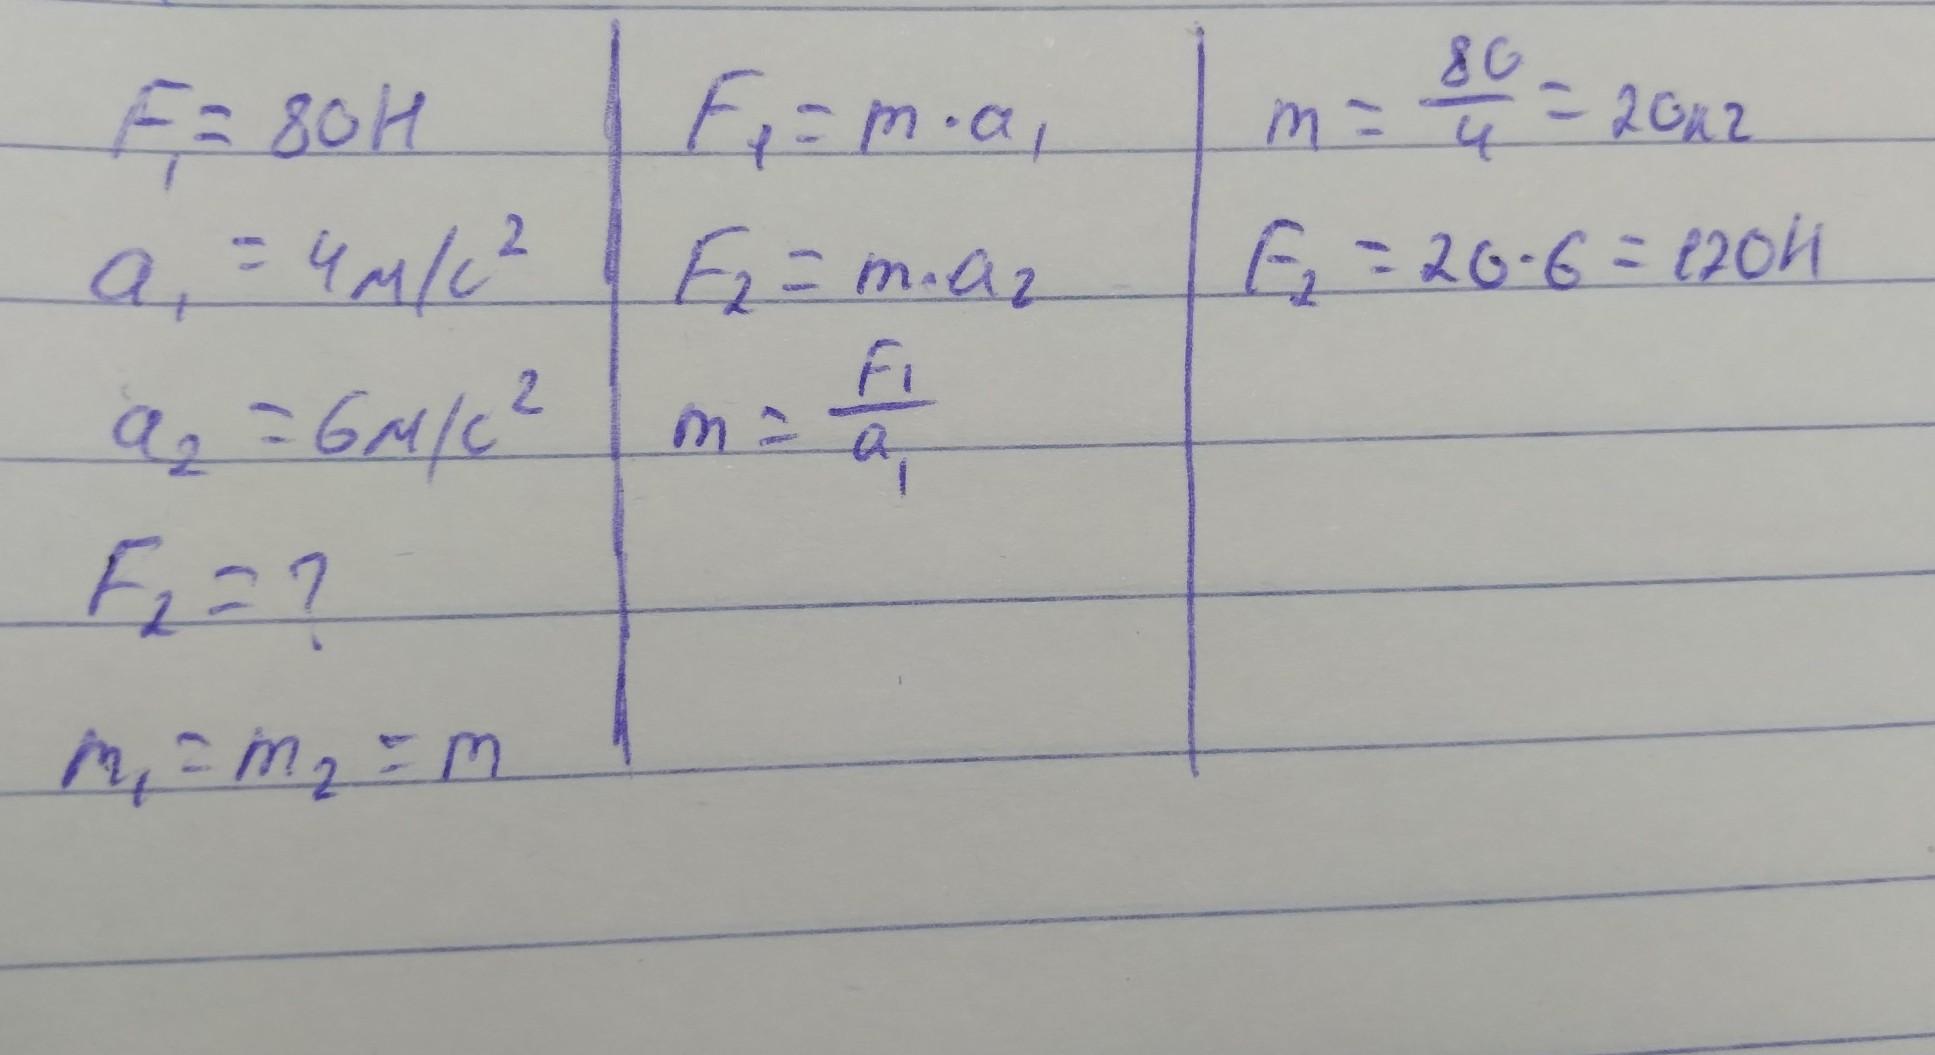 F₁ = 80Н
a₁ = 4м/с²
a₂ = 6м/с²
F₂ = ?
m₁ = m₂ = m
F₁ = m · a₁
F₂ = m · a₂
m = F₁/a₁
m = 80/4 = 20кг
F₂ = 20 · 6 = 120Н